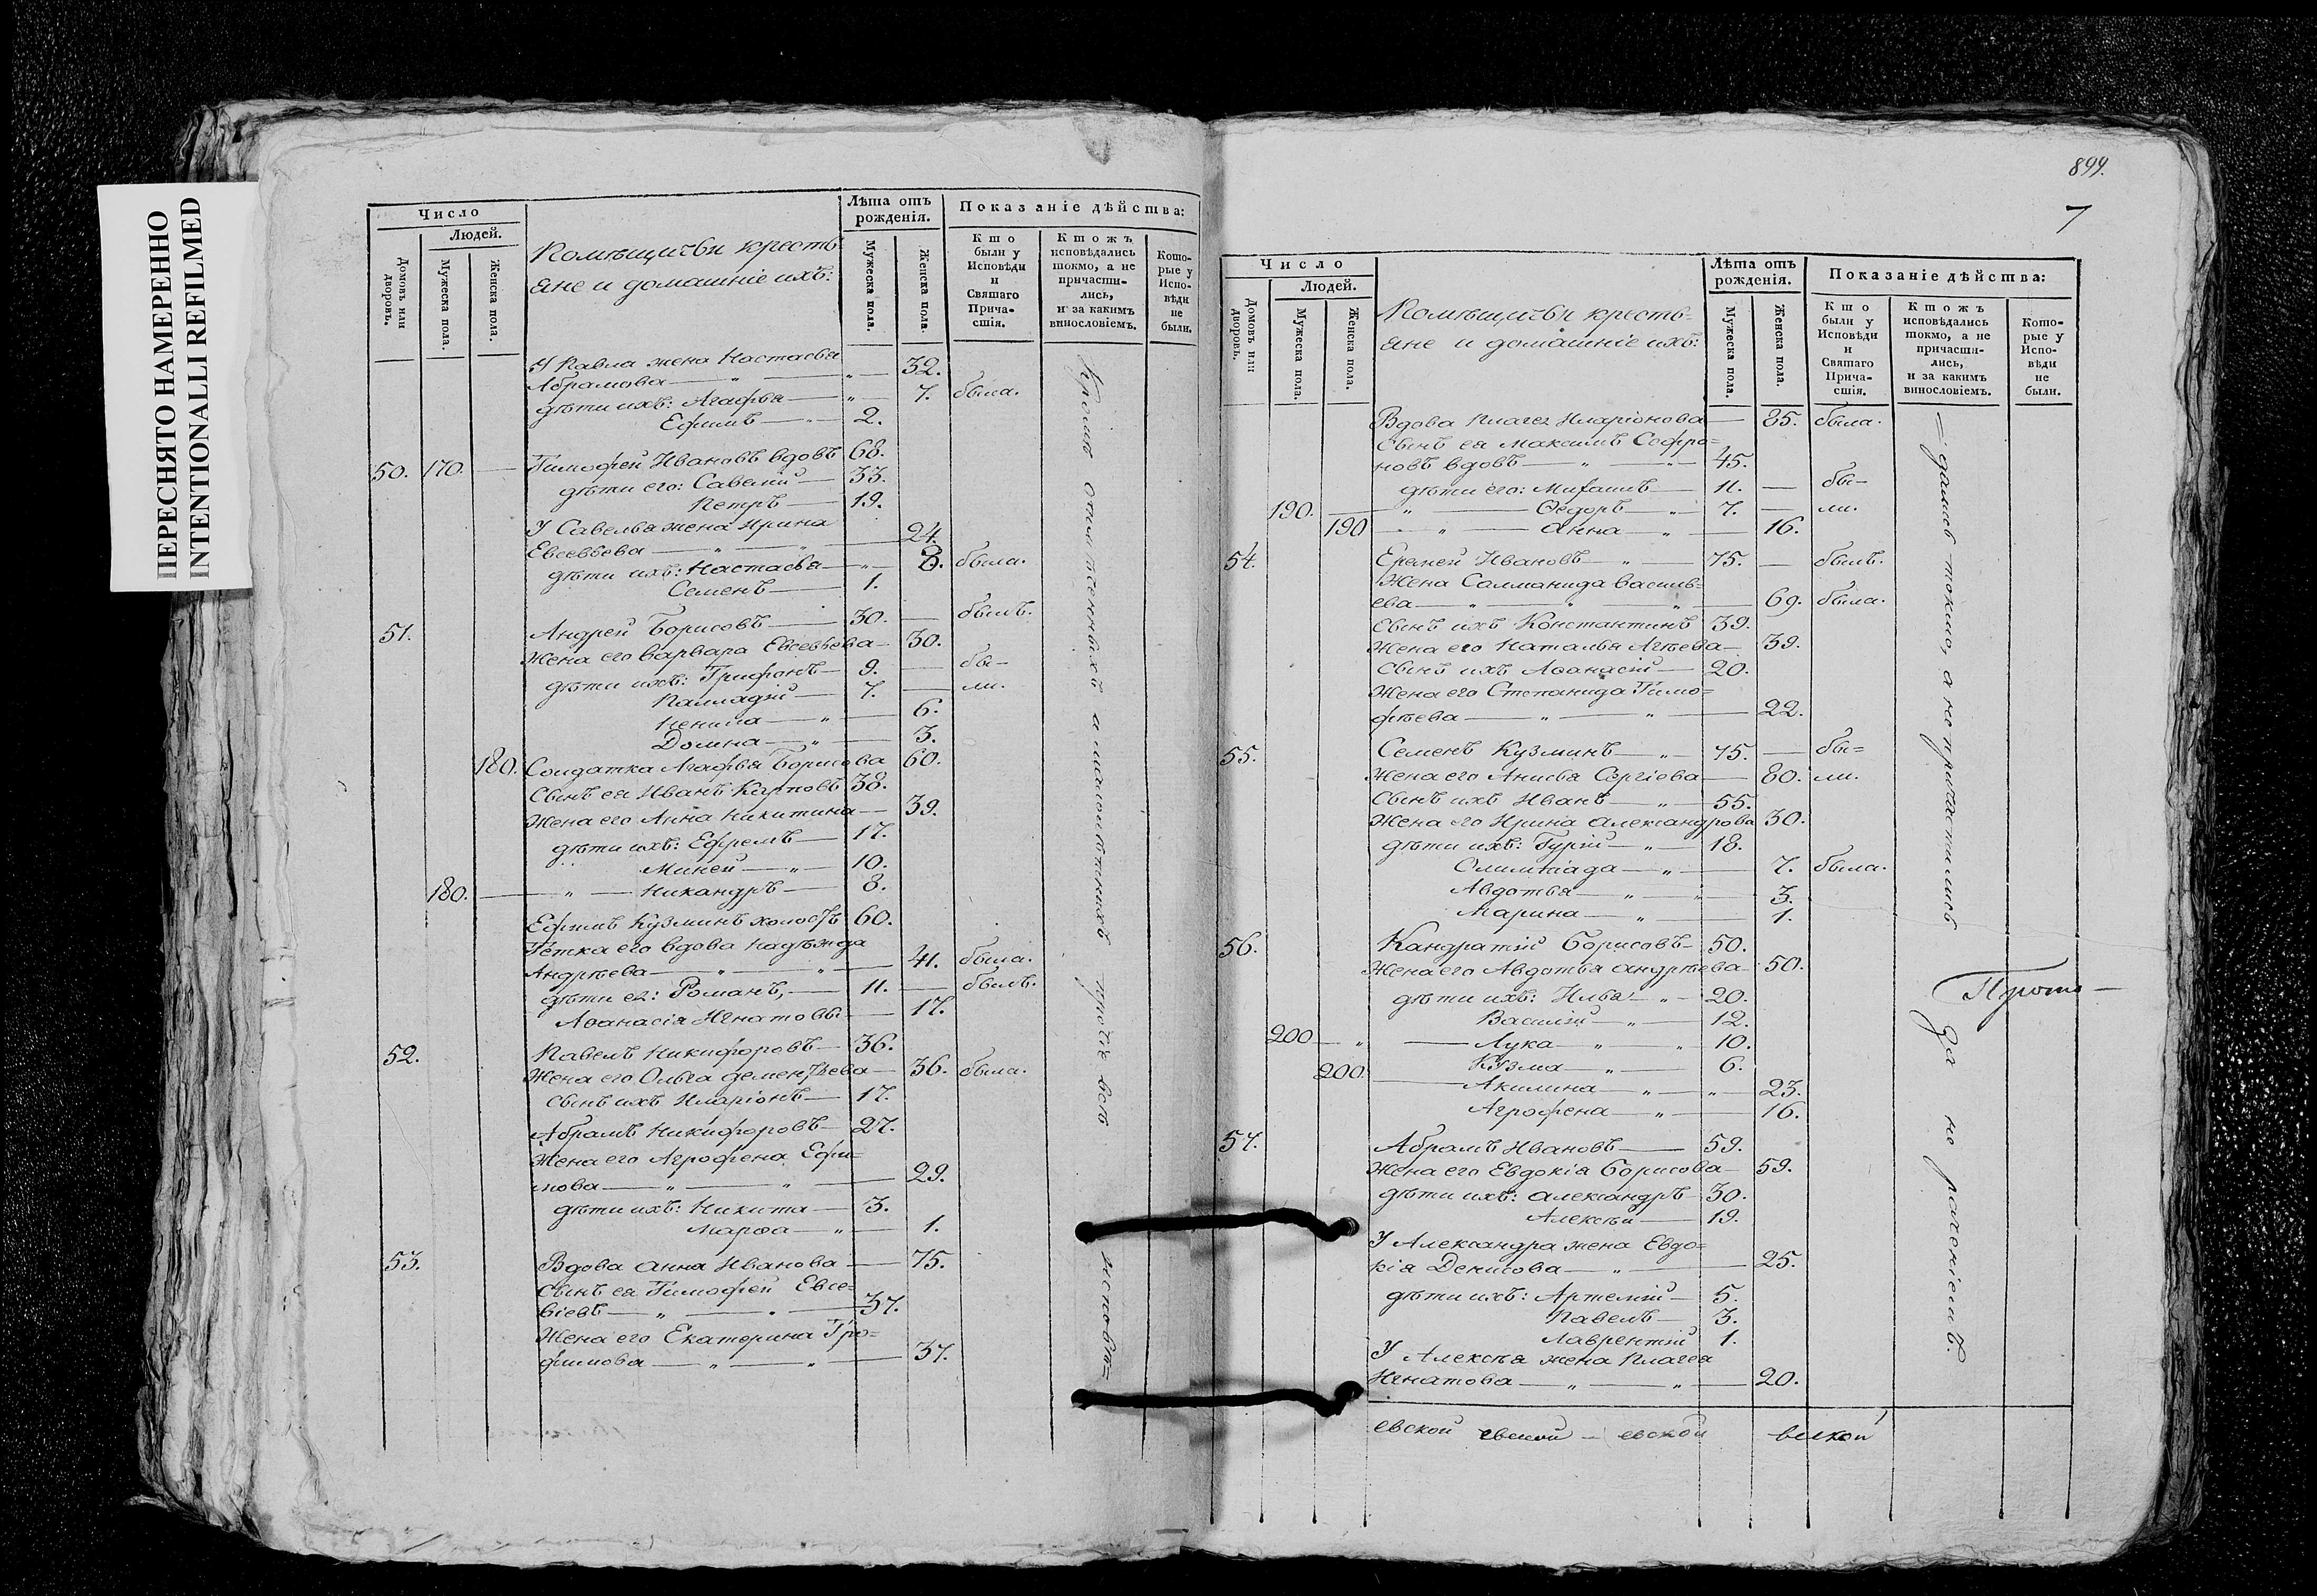 ПЕРЕСНЯТО НАМЕРЕННО
INTENTIONALLI REFILMED
Число
Людей.
Домовъ или дворовъ.
Мужеска пола.
Женска пола.
Помѣщичьи кресть
яне и домашніе ихъ:
Лѣта отъ рожденія.
Мужеска пола.
Женска пола.
Показаніе дѣйства:
Кто были у Исповѣди и Святаго Прича- стія.
Ктожъ исповѣдались токмо, а не причасти- лись, и за какимъ винословіемъ.
Кото- рые у Испо- вѣди не были.
У Павла жена Настасья
Абрамова — „ — „ — 32.
дѣти ихъ: Агафья — „ — 7. была.
Ефимъ — 2.
50. 170. — Тимофей Ивановъ вдовъ 68.
дѣти его: Савелий — 33.
Петръ — 19.
У Савелья жена Ирина
Евсевьева — „ — „ — 24.
дѣти ихъ: Настасья — „ — 8. была.
Семенъ — 1.
51. Андрей Борисовъ — 30. — былъ.
Жена его Варвара Евсевьева — 30.
дѣти ихъ: Трифонъ — 9. — бы–
Палладій — 7. — ли.
Ненила — „ — 6.
Домна — „ — 3.
180. Солдатка Агафья Борисова 60.
Сынъ ея Иванъ Карповъ 38.
Жена его Анна Никитина — 39.
дѣти ихъ: Ефремъ — 17.
Миней — „ — 10.
180. — „ — Никандръ — 8.
Ефимъ Кузминъ холостъ 60.
Тетка его вдова Надѣжда
Андрѣева — „ — „ — 41. была.
дѣти ея: Романъ, — 11. — былъ.
Аѳанасія Игнатовы — 17.
52. Павелъ Никифоровъ — 36.
Жена его Ольга Дементьева — 36. была.
Сынъ ихъ Иларіонъ — 17.
Абрамъ Никифоровъ — 27.
Жена его Агрофена Ефи=
мова — „ — „ — 29.
дѣти ихъ: Никита — 3.
Марѳа — „ — 1.
53. Вдова Анна Иванова — 75.
Сынъ ея Тимофей Евсе=
віевъ — „ — „ — 37.
Жена его Екатерина Тро=
фимова — „ — „ — 37.
Кромѣ отмѣченныхъ а малолѣтнихъ протчіе всѣ исповѣ=
899.
7
Число
Людей.
Домовъ или дворовъ.
Мужеска пола.
Женска пола.
Помѣщичьи кресть=
яне и домашніе ихъ:
Лѣта отъ рожденія.
Мужеска пола.
Женска пола.
Показаніе дѣйства:
Кто были у Исповѣди и Святаго Прича- стія.
Ктожъ исповѣдались токмо, а не причасти- лись, и за какимъ винословіемъ.
Кото- рые у Испо- вѣди не были.
Вдова Плагея Иларіонова — 85. была.
Сынъ ея Максимъ Софро=
новъ вдовъ — „ — „ — 45.
дѣти его: Михаилъ — 11. — бы–
190. — „ — Ѳедоръ — „ — 7. — ли.
190 — „ — Анна — „ — 16.
54. Еремей Ивановъ — „ — 75. — былъ.
Жена Саломанида Василь=
ева — „ — „ — „ — 69. была.
Сынъ ихъ Константинъ 39.
Жена его Наталья Агѣева — 39.
Сынъ ихъ Аѳанасій — 20.
Жена его Степанида Тимо=
фѣева — „ — „ — 22.
55. Семенъ Кузминъ — „ — 75. — бы=
Жена его Анисья Сергіева — 80. ли.
Сынъ ихъ Иванъ — „ — 55.
Жена его Ирина Александрова 30.
дѣти ихъ: Гурій — „ — 18.
Олимпіада — „ — 7. была.
Авдотья — „ — „ — 3.
Марина — „ — 1.
56. Кандратій Борисовъ — 50.
Жена его Авдотья Андрѣева — 50.
дѣти ихъ: Илья — „ — 20.
Василій — „ — 12.
200 — „ — Лука — „ — „ — 10.
Кузма — „ — 6.
200. — Акилина — „ — „ — 23.
Агрофена — „ — 16.
57. Абрамъ Ивановъ — 59.
Жена его Евдокія Борисова — 59.
дѣти ихъ: Александръ — 30.
Алексѣй — 19.
У Александра жена Евдо=
кія Денисова — „ — 25.
дѣти ихъ: Артемій — 5.
Павелъ — 3.
Лаврентій 1.
У Алексѣя жена Плагея
Игнатова — „ — „ — 20.
= дались токмо, а не причастились за не раченіемъ.
Прото —
евской евской – евской